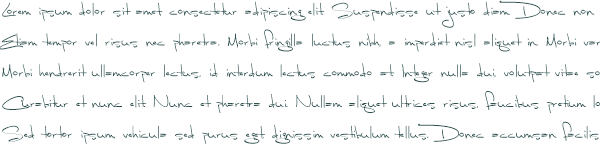 Lorem ipsum dolor sit amet consectetur adipiscing elit Suspendisse ut justo diam Donec non
Etiam tempor vel risus nec pharetra. Morbi fringilla luctus nibh a imperdiet nisl aliquet in Morbi var
Morbi hendrerit ullamcorper lectus, id interdum lectus commodo at Integer nulla dui volutpat vitae so
Curabitur et nunc elit Nunc et pharetra dui Nullam aliquet ultrices risus, faucibus pretium lo
Sed tortor ipsum vehicula sed purus eget dignissim vestibulum tellus. Donec accumsan facilis